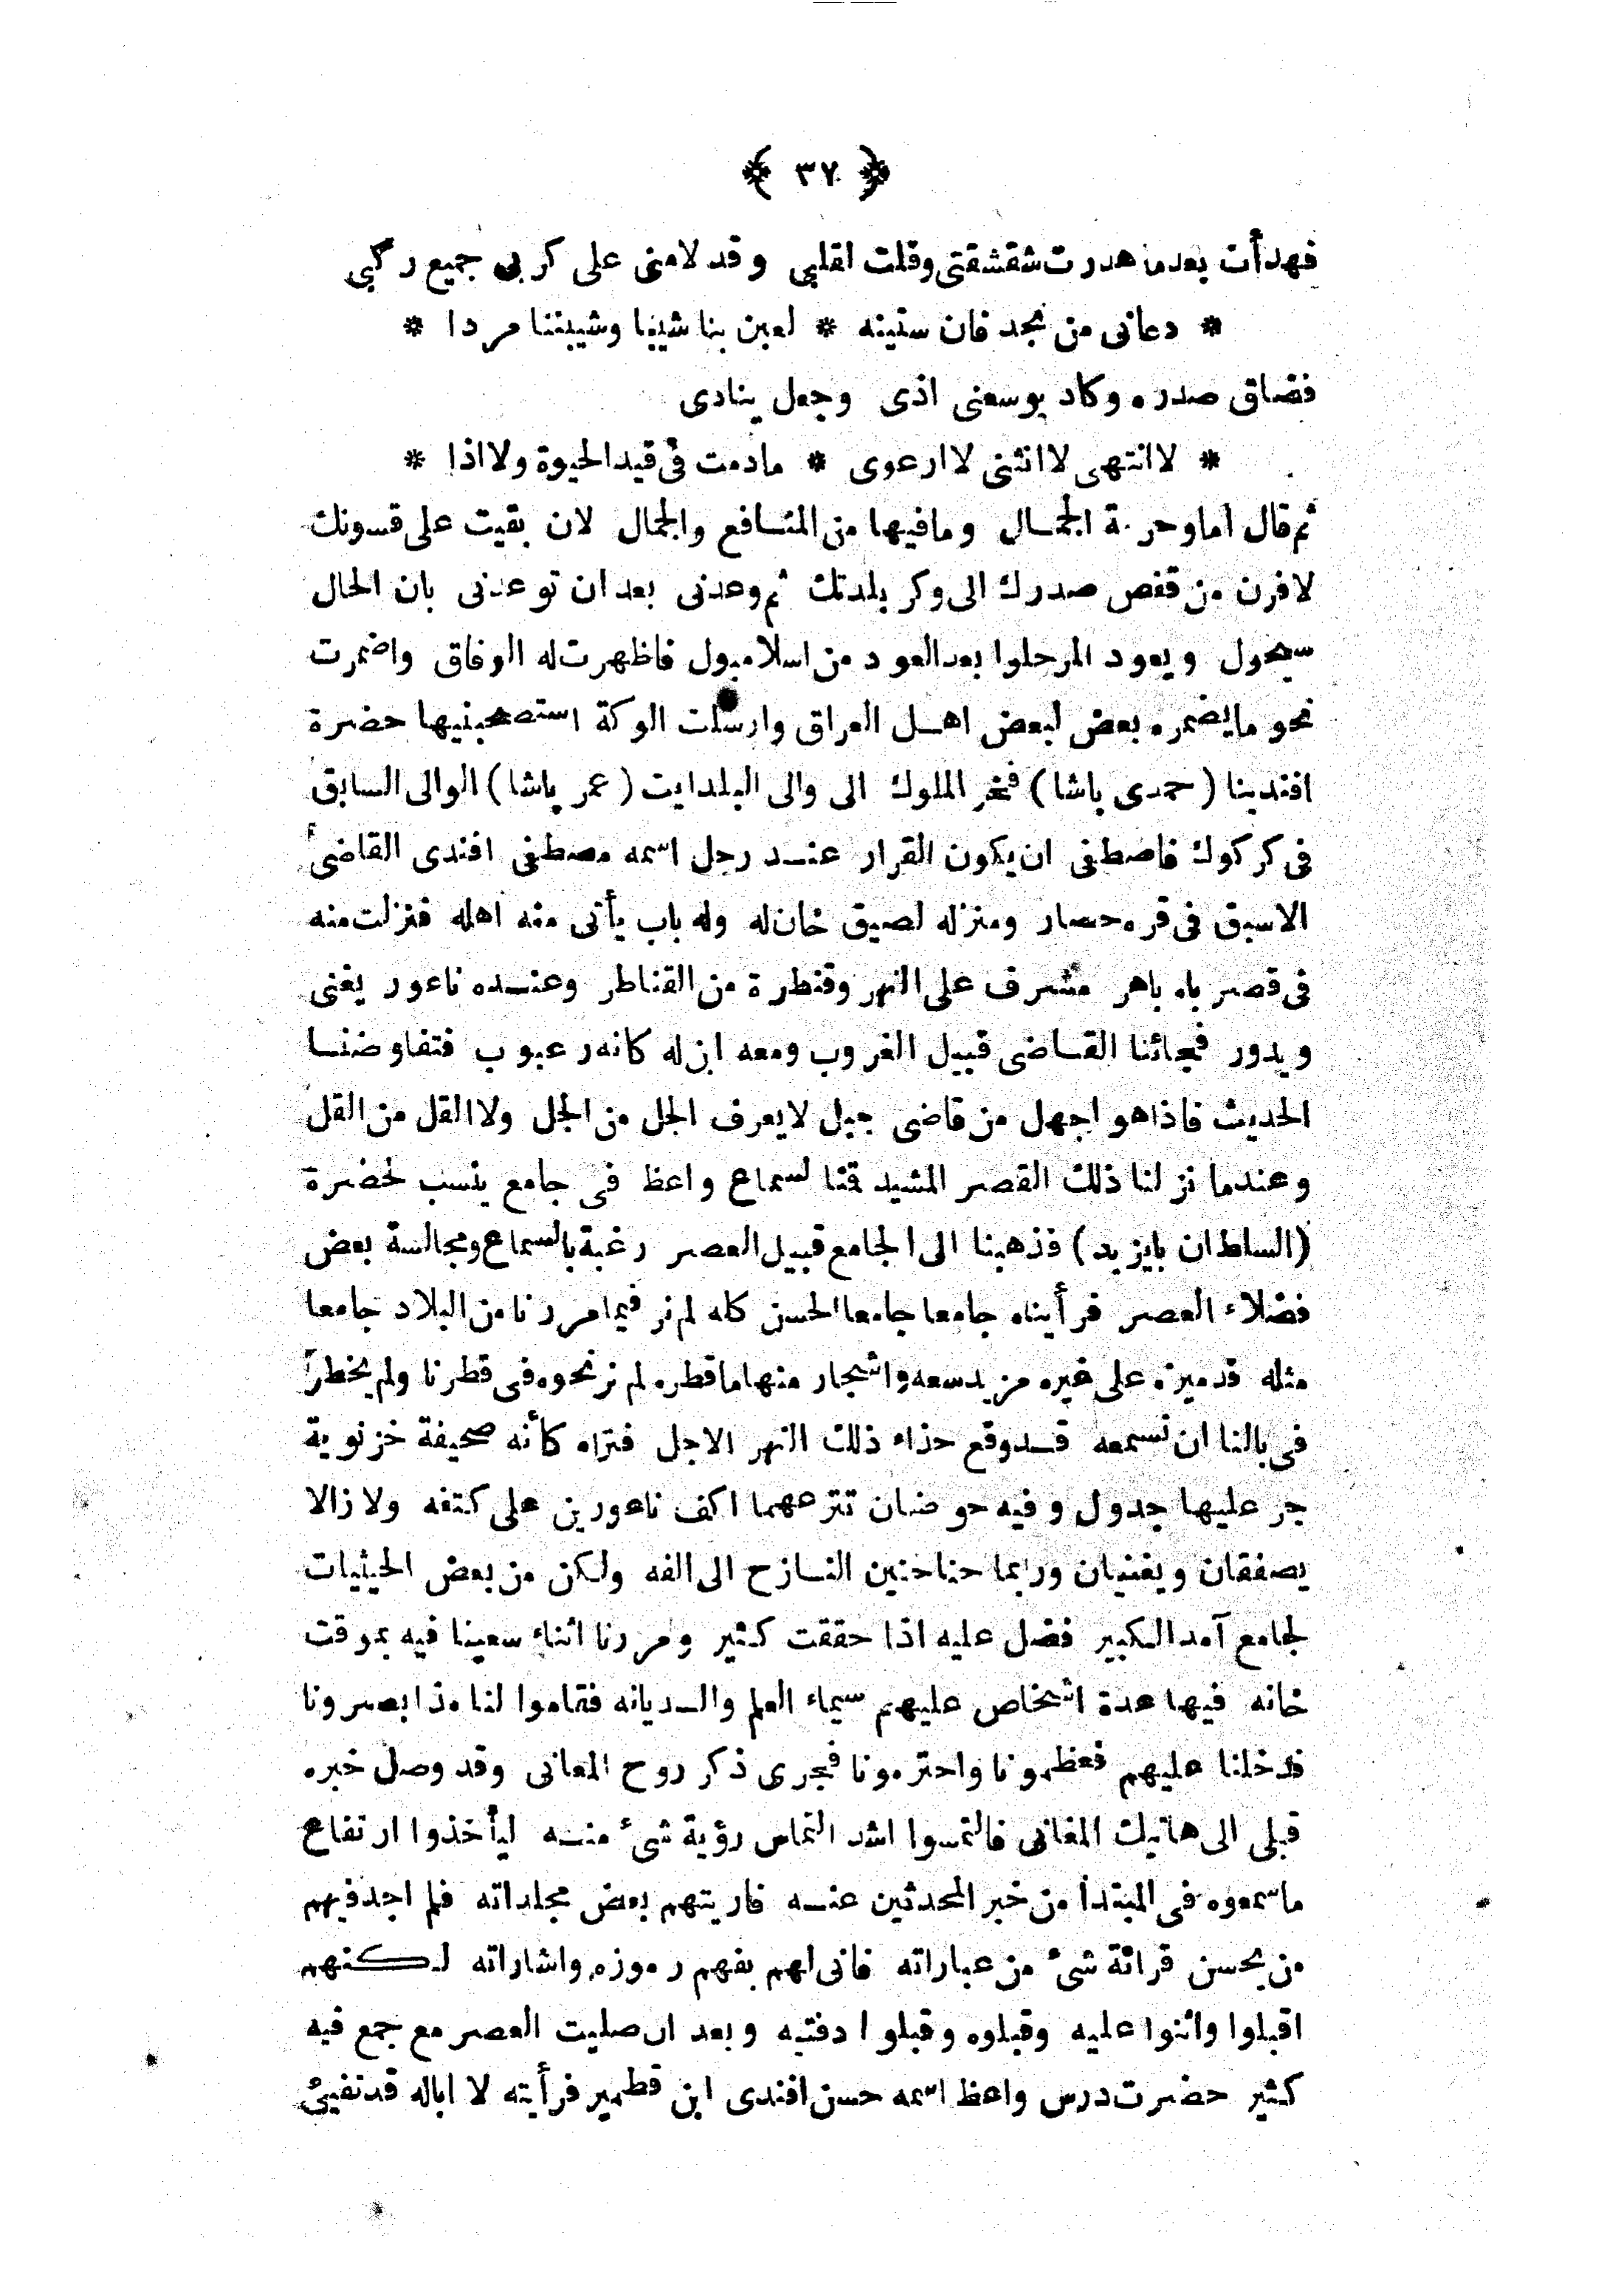 ﴿ ٣٧ ﴾
فهدأت بعدما هدرت شقشقتى وقلت اقلبى وقد لامنى على كربى جميع ركبى
* دعانى من نجد فان سنينه * لعبن بنا شيبا وشيبننا مردا *
فضاق صدره وكاد يوسعنى اذى وجعل ينادى
* لا انتهى لا انثنى لا ارعوى * مادمت فى قيد الحيوة ولا اذا *
ثم قال اما وحرمة الجمال ومافيها من المنافع والجمال لان بقيت على قسوتك
لافرن من قفص صدرك الى وكر بلدتك ثم وعدنى بعد ان توعدنى بان الحال
سيحول ويعود المر حلوا بعد العود من اسلامبول فاظهرت له الوفاق واضمرت
نحو مايضمره بعض لبعض اهل العراق وارسلت الوكة استصحبنيها حضرة
افندينا (حمدى باشا) فخر الملوك الى والى البلدايت (عمر پاشا) الوالى السابق
فى كركوك فاصطفى ان يكون القرار عند رجل اسمه مصطفى افندى القاضى
الاسبق فى قره حصار ومنزله لصيق خان له وله باب يأتى منه اهله فنزلت منه
فى قصر باه باهر مشرف على النهر وقنطرة من القناطر وعنده ناعور يغنى
ويدور فجائنا القاضى قبيل الغروب ومعه ابن له كانه رعبوب فتفاوضنا
الحديث فاذا هو اجهل من قاضى جبل لايعرف الجل من الجل ولا القل من القل
وعندما نزلنا ذلك القصر المشيد قمنا لسماع واعظ فى جامع ينسب لحضرة
(السلطان بايزيد) فذهبنا الى الجامع قبيل العصر رغبة بالسماع ومجالسة بعض
فضلاء العصر فرأيناه جامعا جامعا الحسن كله لم نر فيما مررنا من البلاد جامعا
مثله قد ميزه على غيره مزيد سعه واشجار منها ما قطره لم نر نحوه فى قطرنا ولم يخطر
فى بالنا ان نسمعه قد وقع حذاء ذلك النهر الاجل فتراه كأنه صحيفة خزنوية
جر عليها جدول وفيه حوضان تترعهما اكف ناعورين على كتفه ولا زالا
يصفقان ويغنيان وربما حنا حنين النازح الى الفه ولكن من بعض الحيثيات
لجامع آمد الكبير فضل عليه اذا حققت كثير ومررنا اثناء سعينا فيه بموقت
خانه فيها عدة اشخاص عليهم سيماء العلم والديانه فقاموا لنا مذ ابصرونا
فدخلنا عليهم فعظمونا واحترمونا فجرى ذكر روح المعانى وقد وصل خبره
قبلى الى هاتيك المغانى فالتمسوا اشد التماس رؤية شئ منه ليأخذوا ارتفاع
ماسمعوه فى المبتدأ من خبر المحدثين عنه فاريتهم بعض مجلداته فلم اجد فيهم
من يحسن قرائة شئ من عباراته فانى لهم بفهم رموزه واشاراته لكنهم
اقبلوا واثنوا عليه وقبلوه وقبلوا دفتيه وبعد ان صليت العصر مع جمع فيه
كثير حضرت درس واعظ اسمه حسن افندى ابن قطمير فرأيته لا اباله قد تفيئ